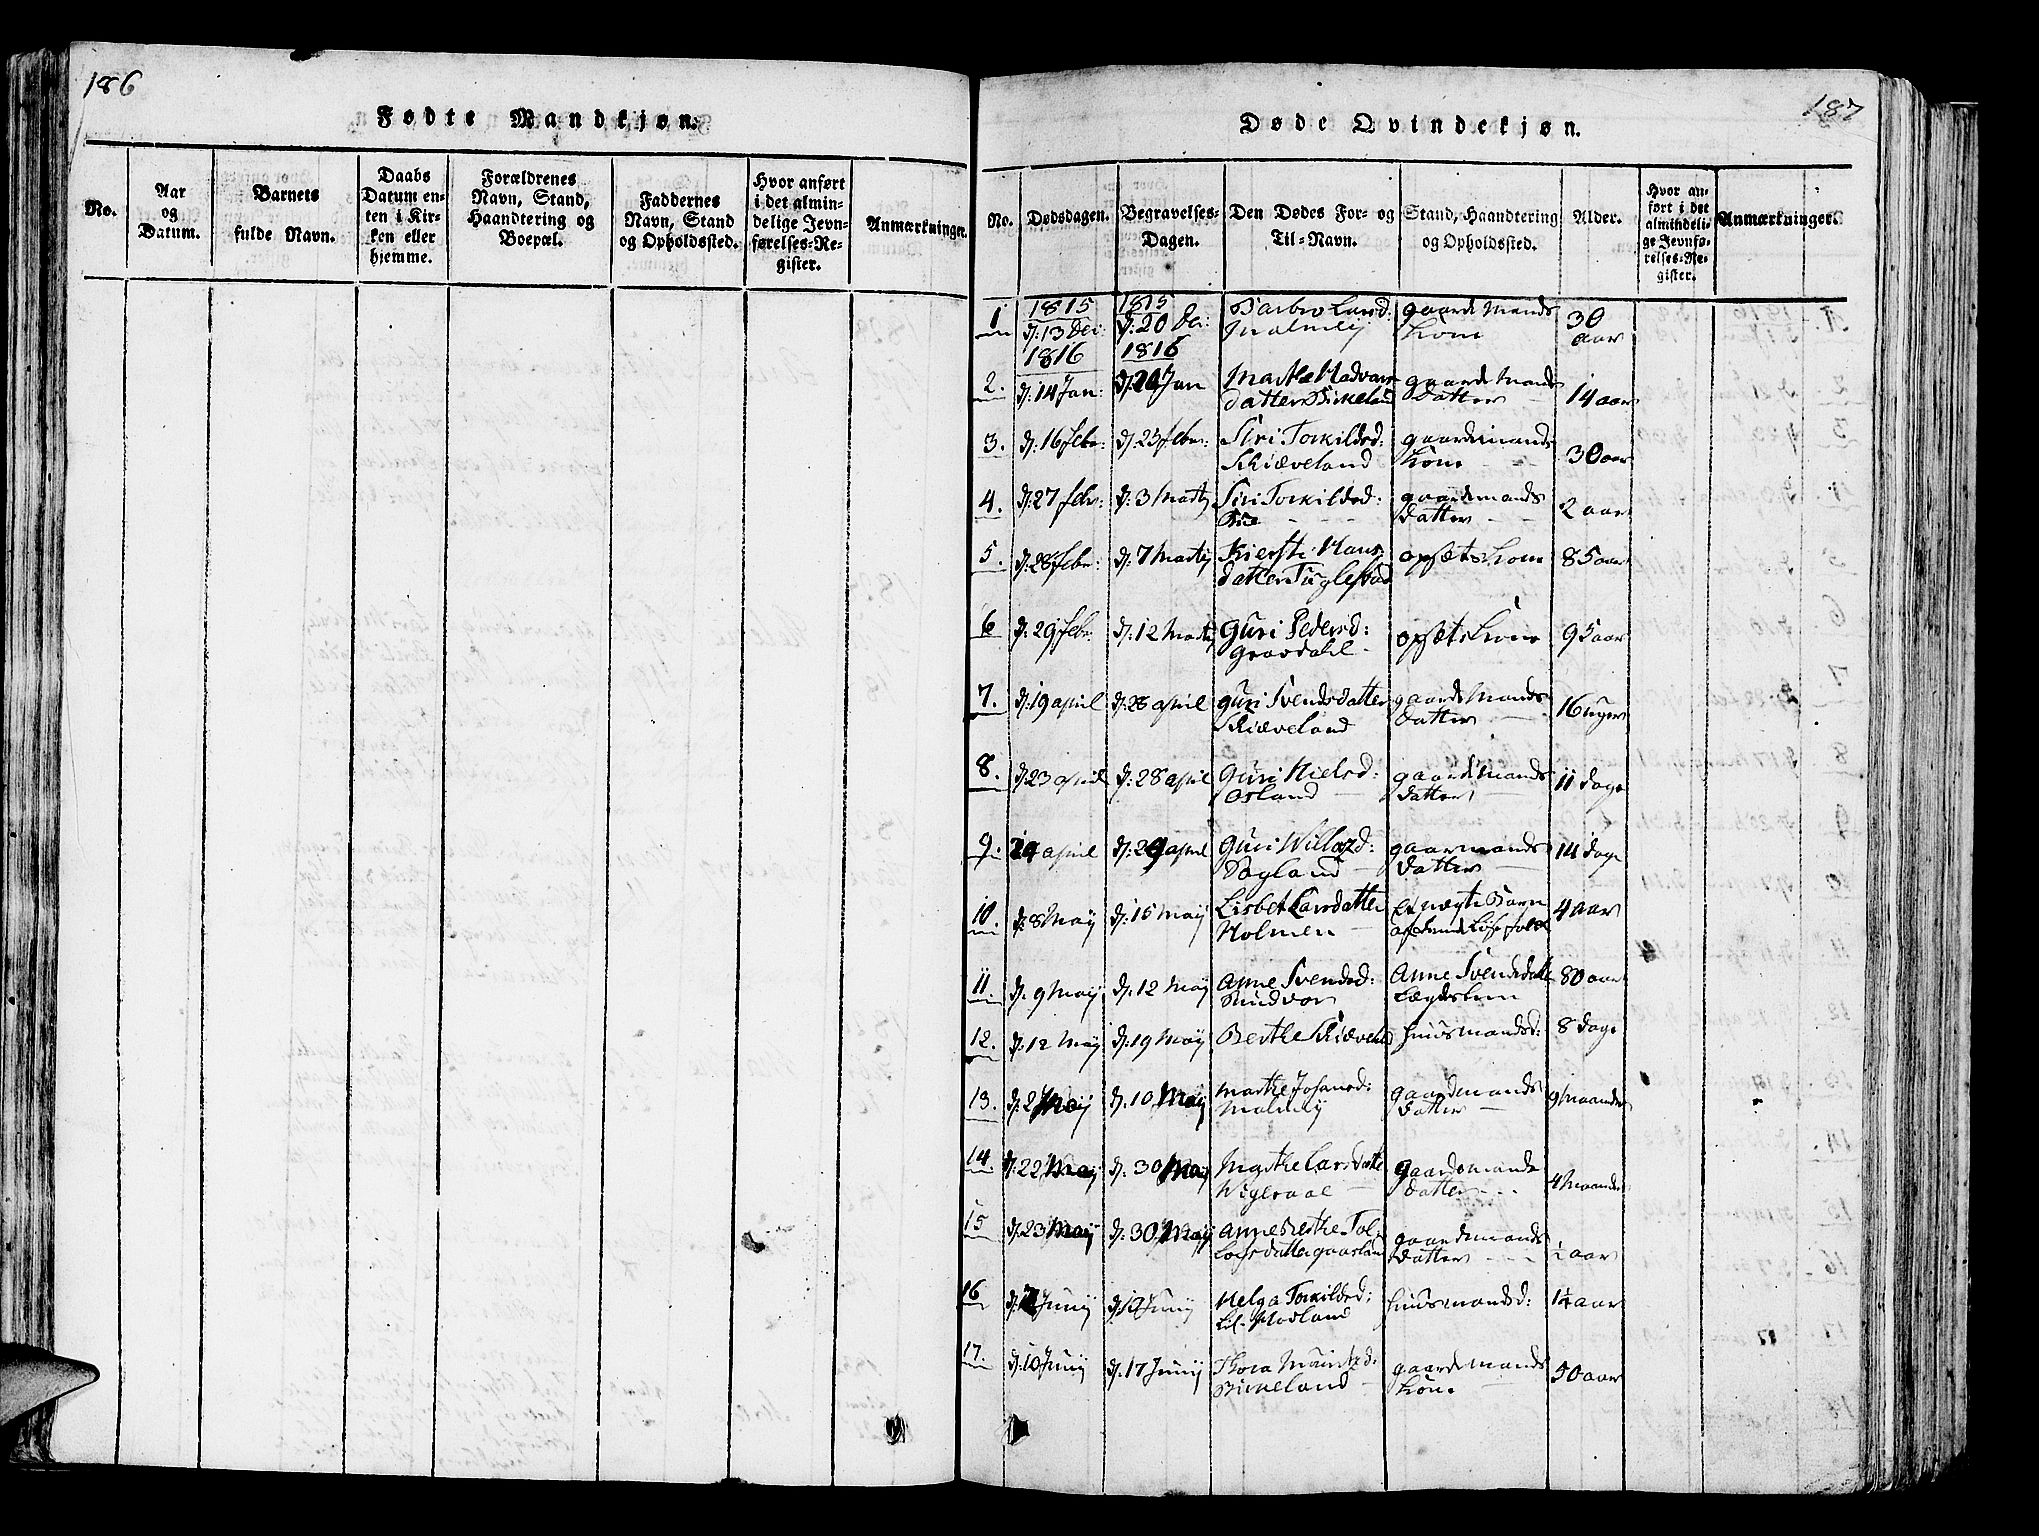 186
Fødte Mandkjøn.
No.
Aar
og
Datum.
Barnets
fulde Navn.
Daabs
Datum en-
ten i Kir-
ken eller
hjemme.
Forældrenes
Navn, Stand,
Haandtering og
Boepæl.
Faddernes
Navn, Stand
og Opholdssted.
Hvor anført
i det almin-
delige Jevn-
førelses-Re-
gister.
Anmærkninger.
187
Døde Qvindekjøn.
No.
Dødsdagen.
Begravelses-
Dagen.
Den Dødes For- og
Til-Navn.
Stand, Haandtering
og Opholdssted.
Alder.
Hvor an-
ført i det
almindeli-
ge Jevnfø-
relses-Re-
gister.
Anmærkninger.
1 1815 d: 13 Dec: 1815 d: 20 De: Barbro Larsd: Malmeij gaardmands Kone 30 aar
1816 1816
2. d: 14 Jan: d: 20 Jan Marthe Hadvars datter Birkeland gaardmands datter 14 aar
3. d: 16 febr: d: 23 febr: Siri Torkildsd: Skiæveland gaardmands Kone 30 aar
4. d: 27 febr: d: 3 Martij Siri Torkildsd: gaardemands datter 2 aar
5. d: 28 febr: d: 7 Martij Kiersti Hans datter Fuglestad opsæts Kone 85 aar
6 d: 29 febr: d: 12 Martij Guri Pedersd: Gravdahl opsæts Kone 95 aar
7. d: 19 april d: 28 april Guri Svendsdatter Skiæveland gaardmands datter 16 uger
8. d: 23 april d: 28 april Guri Nielsd: Osland gaardmands datter 11 dage
9. 24 april d: 29 april Guri Sagland gaarmands datter 14 dage
10. d: 8 Maij d: 15 Maij Lisbet Larsdatter Holmen Et uægte Barn af Løse folck 4 aar
11. d. 9 Maij d: 12 Maij Anne Svendsd: Rudvor Anne Svendsdatter Lægdslem 80 aar
12. d: 12 Maij d: 19 Maij Berthe Skiæveld huusmandsd: 8 dage
13. d: 2 Maij d. 10 Maij Marthe Johansd: Malmeij gaardmands datter 9 Maander
14. d. 22 Maij d. 30 Maij Marthe Larsdatte Wigesaae gaardemands datter 4 Maander
15 d. 23 Maij d: 30 Maij Anne Berthe Tollofsdatter gaasland gaardemands datter ½ aar
16 d: Junij d: 19 Junij Helga Torkildsd: Lil-Modland huusmandsd: 1¼ aar
17. d: 10 Junij d: 17 Junij Thora Birkeland gaardemands Kone 50 aar